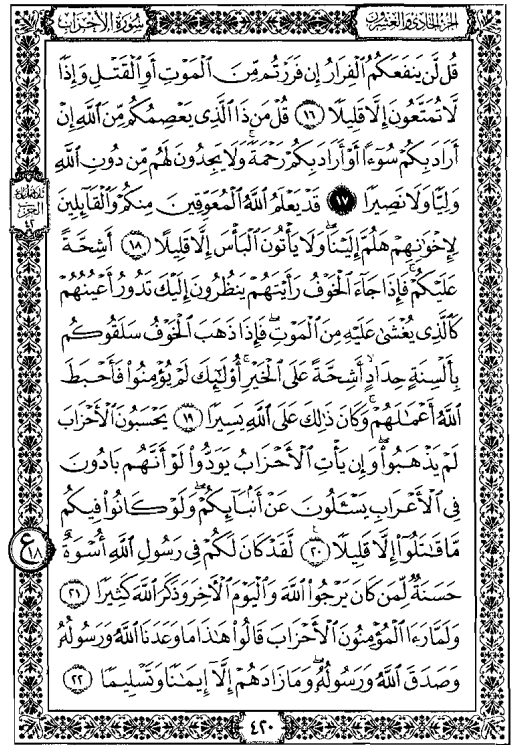 الجزء الحادي والعشرون
سورة الأحزاب
قُل لَّن يَنفَعَكُمُ ٱلْفِرَارُ إِن فَرَرْتُم مِّنَ ٱلْمَوْتِ أَوِ ٱلْقَتْلِ وَإِذًا
لَّا تُمَتَّعُونَ إِلَّا قَلِيلًا ١٦ قُلْ مَن ذَا ٱلَّذِى يَعْصِمُكُم مِّنَ ٱللَّهِ إِنْ
أَرَادَ بِكُمْ سُوٓءًا أَوْ أَرَادَ بِكُمْ رَحْمَةً ۚ وَلَا يَجِدُونَ لَهُم مِّن دُونِ ٱللَّهِ
وَلِيًّا وَلَا نَصِيرًا ١٧ قَدْ يَعْلَمُ ٱللَّهُ ٱلْمُعَوِّقِينَ مِنكُمْ وَٱلْقَآئِلِينَ
لِإِخْوَٰنِهِمْ هَلُمَّ إِلَيْنَا ۖ وَلَا يَأْتُونَ ٱلْبَأْسَ إِلَّا قَلِيلًا ١٨ أَشِحَّةً
عَلَيْكُمْ ۖ فَإِذَا جَآءَ ٱلْخَوْفُ رَأَيْتَهُمْ يَنظُرُونَ إِلَيْكَ تَدُورُ أَعْيُنُهُمْ
كَٱلَّذِى يُغْشَىٰ عَلَيْهِ مِنَ ٱلْمَوْتِ ۖ فَإِذَا ذَهَبَ ٱلْخَوْفُ سَلَقُوكُم
بِأَلْسِنَةٍ حِدَادٍ أَشِحَّةً عَلَى ٱلْخَيْرِ ۚ أُو۟لَٰٓئِكَ لَمْ يُؤْمِنُوا۟ فَأَحْبَطَ
ٱللَّهُ أَعْمَٰلَهُمْ ۚ وَكَانَ ذَٰلِكَ عَلَى ٱللَّهِ يَسِيرًا ١٩ يَحْسَبُونَ ٱلْأَحْزَابَ
لَمْ يَذْهَبُوا۟ ۖ وَإِن يَأْتِ ٱلْأَحْزَابُ يَوَدُّوا۟ لَوْ أَنَّهُم بَادُونَ
فِى ٱلْأَعْرَابِ يَسْـَٔلُونَ عَنْ أَنۢبَآئِكُمْ ۖ وَلَوْ كَانُوا۟ فِيكُم
مَّا قَٰتَلُوٓا۟ إِلَّا قَلِيلًا ٢٠ لَّقَدْ كَانَ لَكُمْ فِى رَسُولِ ٱللَّهِ أُسْوَةٌ
ع ١٨
حَسَنَةٌ لِّمَن كَانَ يَرْجُوا۟ ٱللَّهَ وَٱلْيَوْمَ ٱلْءَاخِرَ وَذَكَرَ ٱللَّهَ كَثِيرًا ٢١
وَلَمَّا رَءَا ٱلْمُؤْمِنُونَ ٱلْأَحْزَابَ قَالُوا۟ هَٰذَا مَا وَعَدَنَا ٱللَّهُ وَرَسُولُهُۥ
وَصَدَقَ ٱللَّهُ وَرَسُولُهُۥ ۚ وَمَا زَادَهُمْ إِلَّآ إِيمَٰنًا وَتَسْلِيمًا ٢٢
٤٢٠